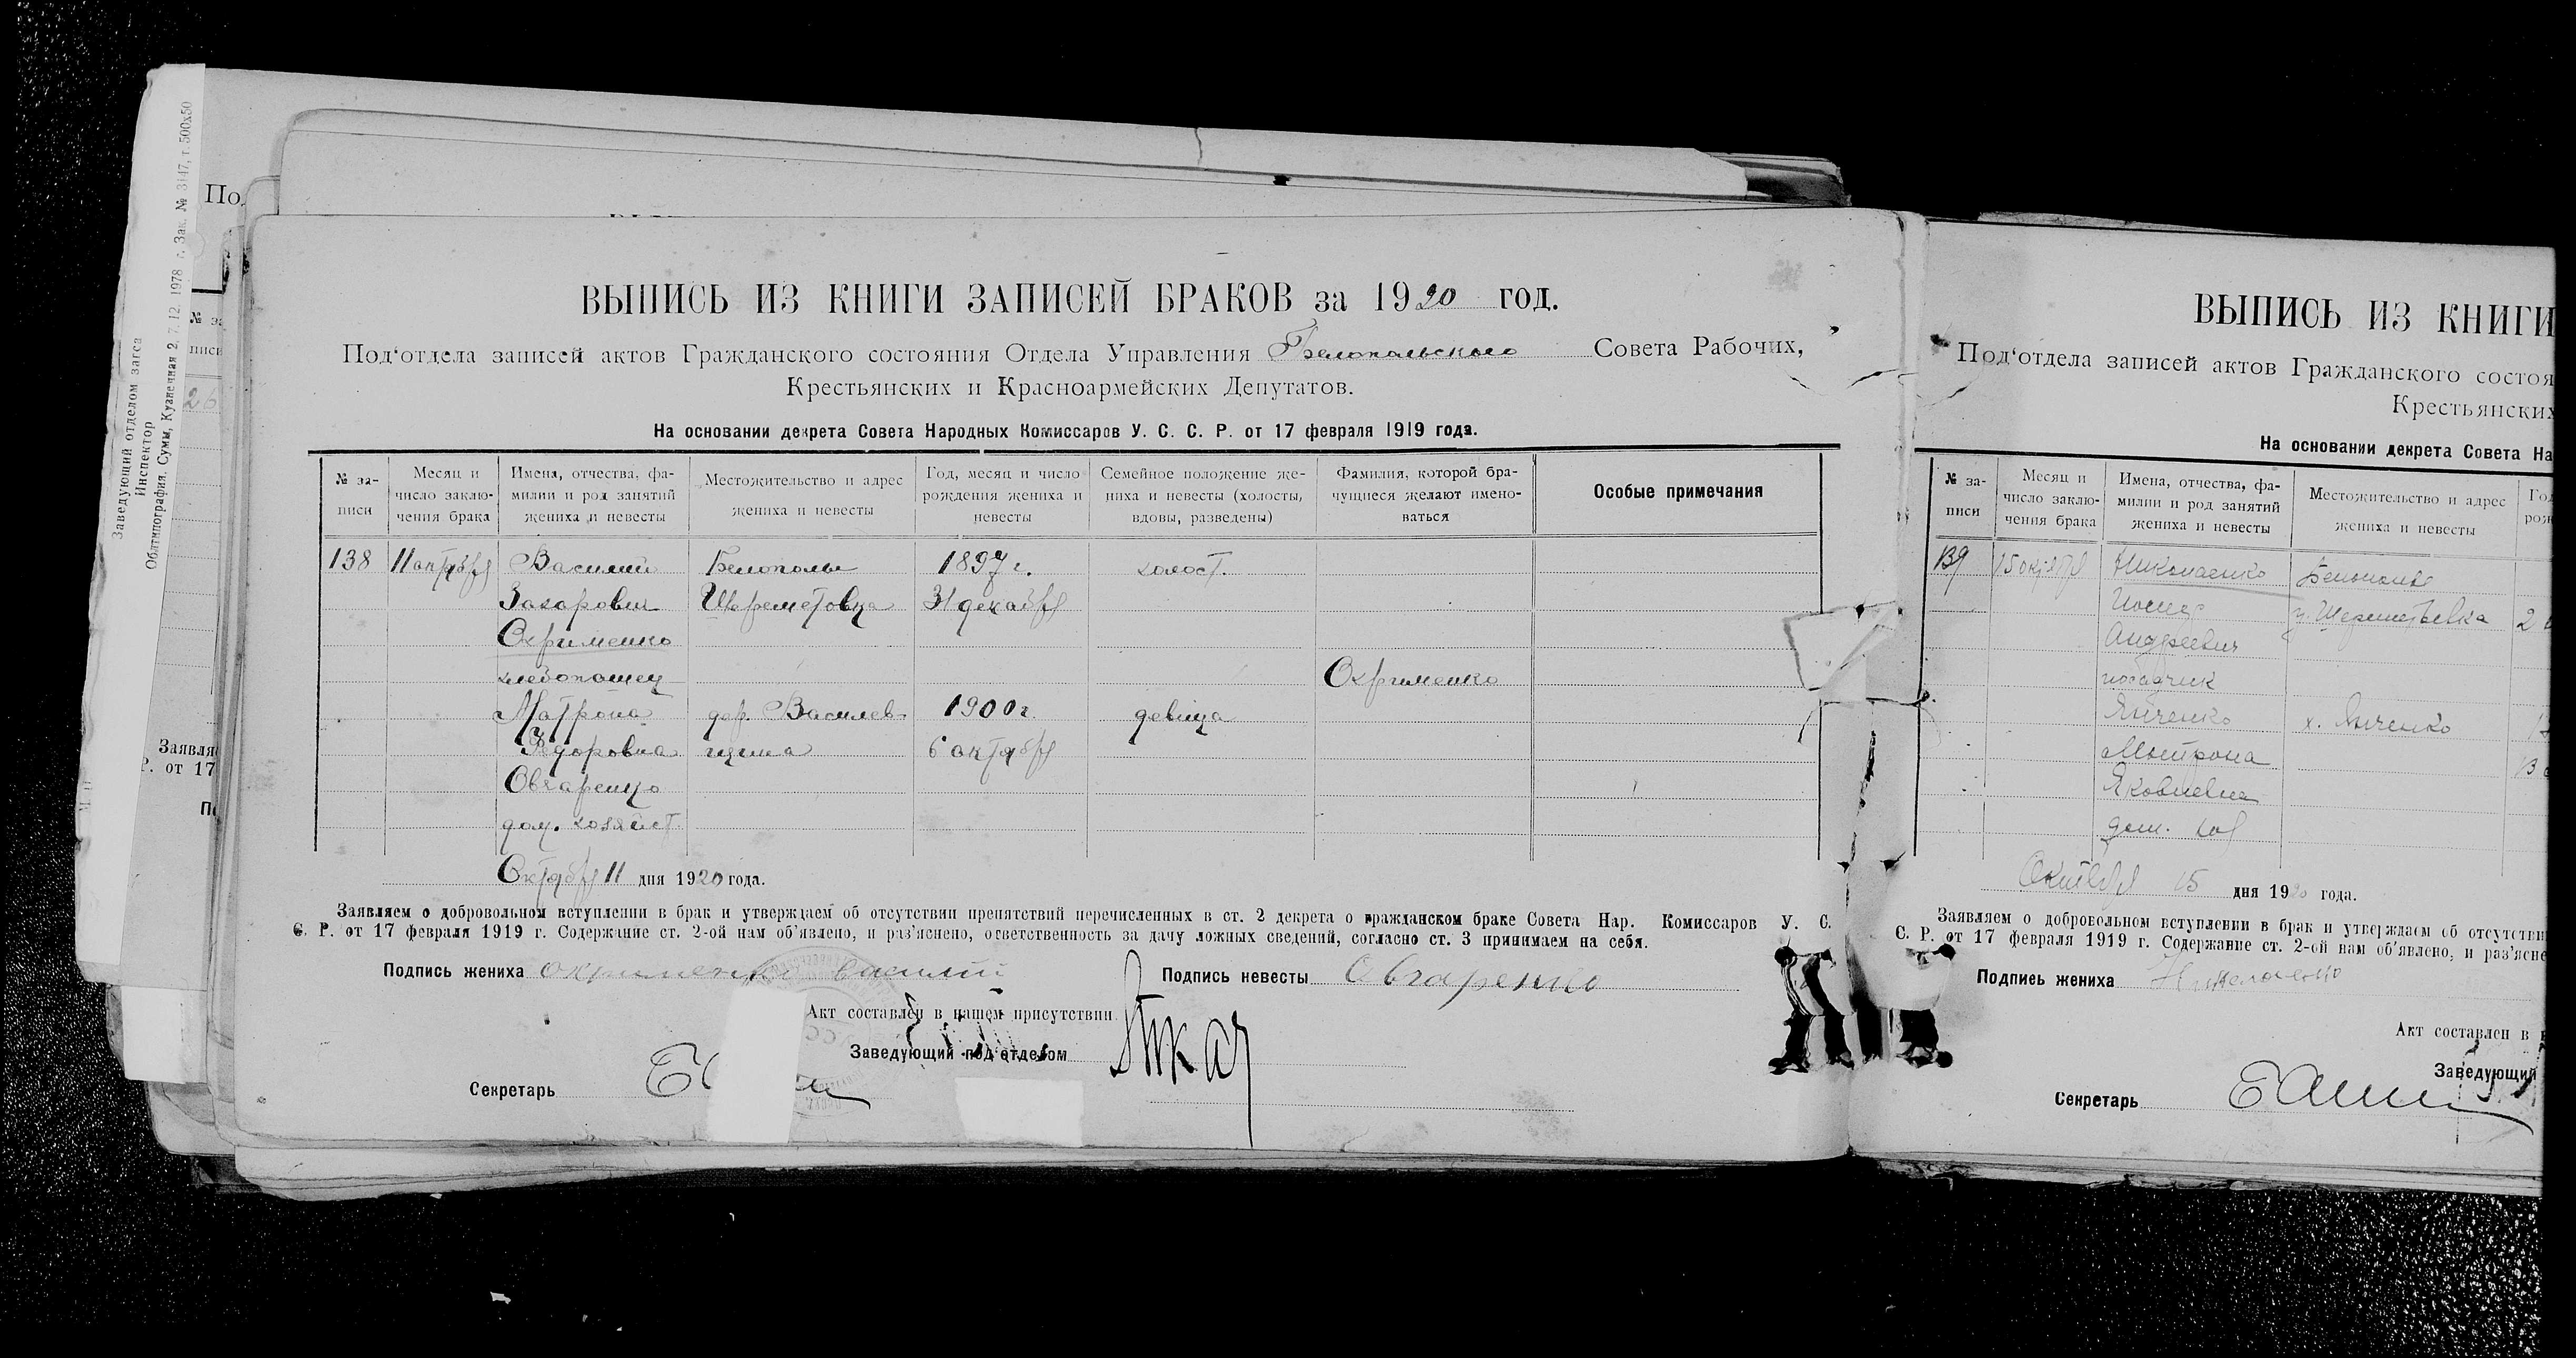 Заведующий отделом загса
Инспектор
Облтипография. Сумы, Кузнечная 2, 7. 12. 1978 г. Зак. № 3147, т. 500х50
По
№ за
писи
26
Заявля
Р. от 17
По
ВЫПИСЬ ИЗ КНИГИ ЗАПИСЕЙ БРАКОВ за 1920 год.
Под‘отдела записей актов Гражданского состояния Отдела Управления Белопольского Совета Рабочих,
Крестьянских и Красноармейских Депутатов.
На основании декрета Совета Народных Комиссаров У. С. С. Р. от 17 февраля 1919 года.
№ за-
писи
Месяц и
число заклю-
чения брака
Имена, отчества, фа-
милии и род занятий
жениха и невесты
Местожительство и адрес
жениха и невесты
Год, месяц и число
рождения жениха и
невесты
Семейное положение же-
ниха и невесты (холосты,
вдовы, разведены)
Фамилия, которой бра-
чущиеся желают имено-
ваться
Особые примечания
138 11 октября Василий Белополье 1897 г. холост.
Захарович Шереметовка 31 декабря
Охрименко
хлебопашец Охрименко
Матрона дер. Василев- 1900 г. девица
Федоровна щина 6 октября
Овчаренко
дом. хозяйст.
Октября 11 дня 1920 года.
Заявляем о добровольном вступлении в брак и утверждаем об отсутствии препятствий перечисленных в ст. 2 декрета о гражданском браке Совета Нар. Комиссаров У. С.
С. Р. от 17 февраля 1919 г. Содержание ст. 2-ой нам об'явлено, и раз'яснено, ответственность за дачу ложных сведений, согласно ст. 3 принимаем на себя.
Подпись жениха Охрименко Василий Подпись невесты Овчаренко
Акт составлен в нашем присутствии
Заведующий под‘отделом
Секретарь
ВЫПИСЬ ИЗ КНИГИ
Под‘отдела записей актов Гражданского состоя
Крестьянских
На основании декрета Совета На
№ за-
писи
Месяц и
число заклю-
чения брака
Имена, отчества, фа-
милии и род занятий
жениха и невесты
Местожительство и адрес
жениха и невесты
Год
рож
139 15 октября Николаенко Белополье
у. Шереметьевка 2
Андреевич
Янченко х. Янченко
Матрона 13
Яковлевна
дом. хоз
Октября 15 дня 1920 года.
Заявляем о добровольном вступлении в брак и утверждаем об отсутстви
С. Р. от 17 февраля 1919 г. Содержание ст. 2-ой нам об'явлено, и раз'ясне
Подпись жениха Николаенко
Акт составлен в н
Заведующий
Секретарь